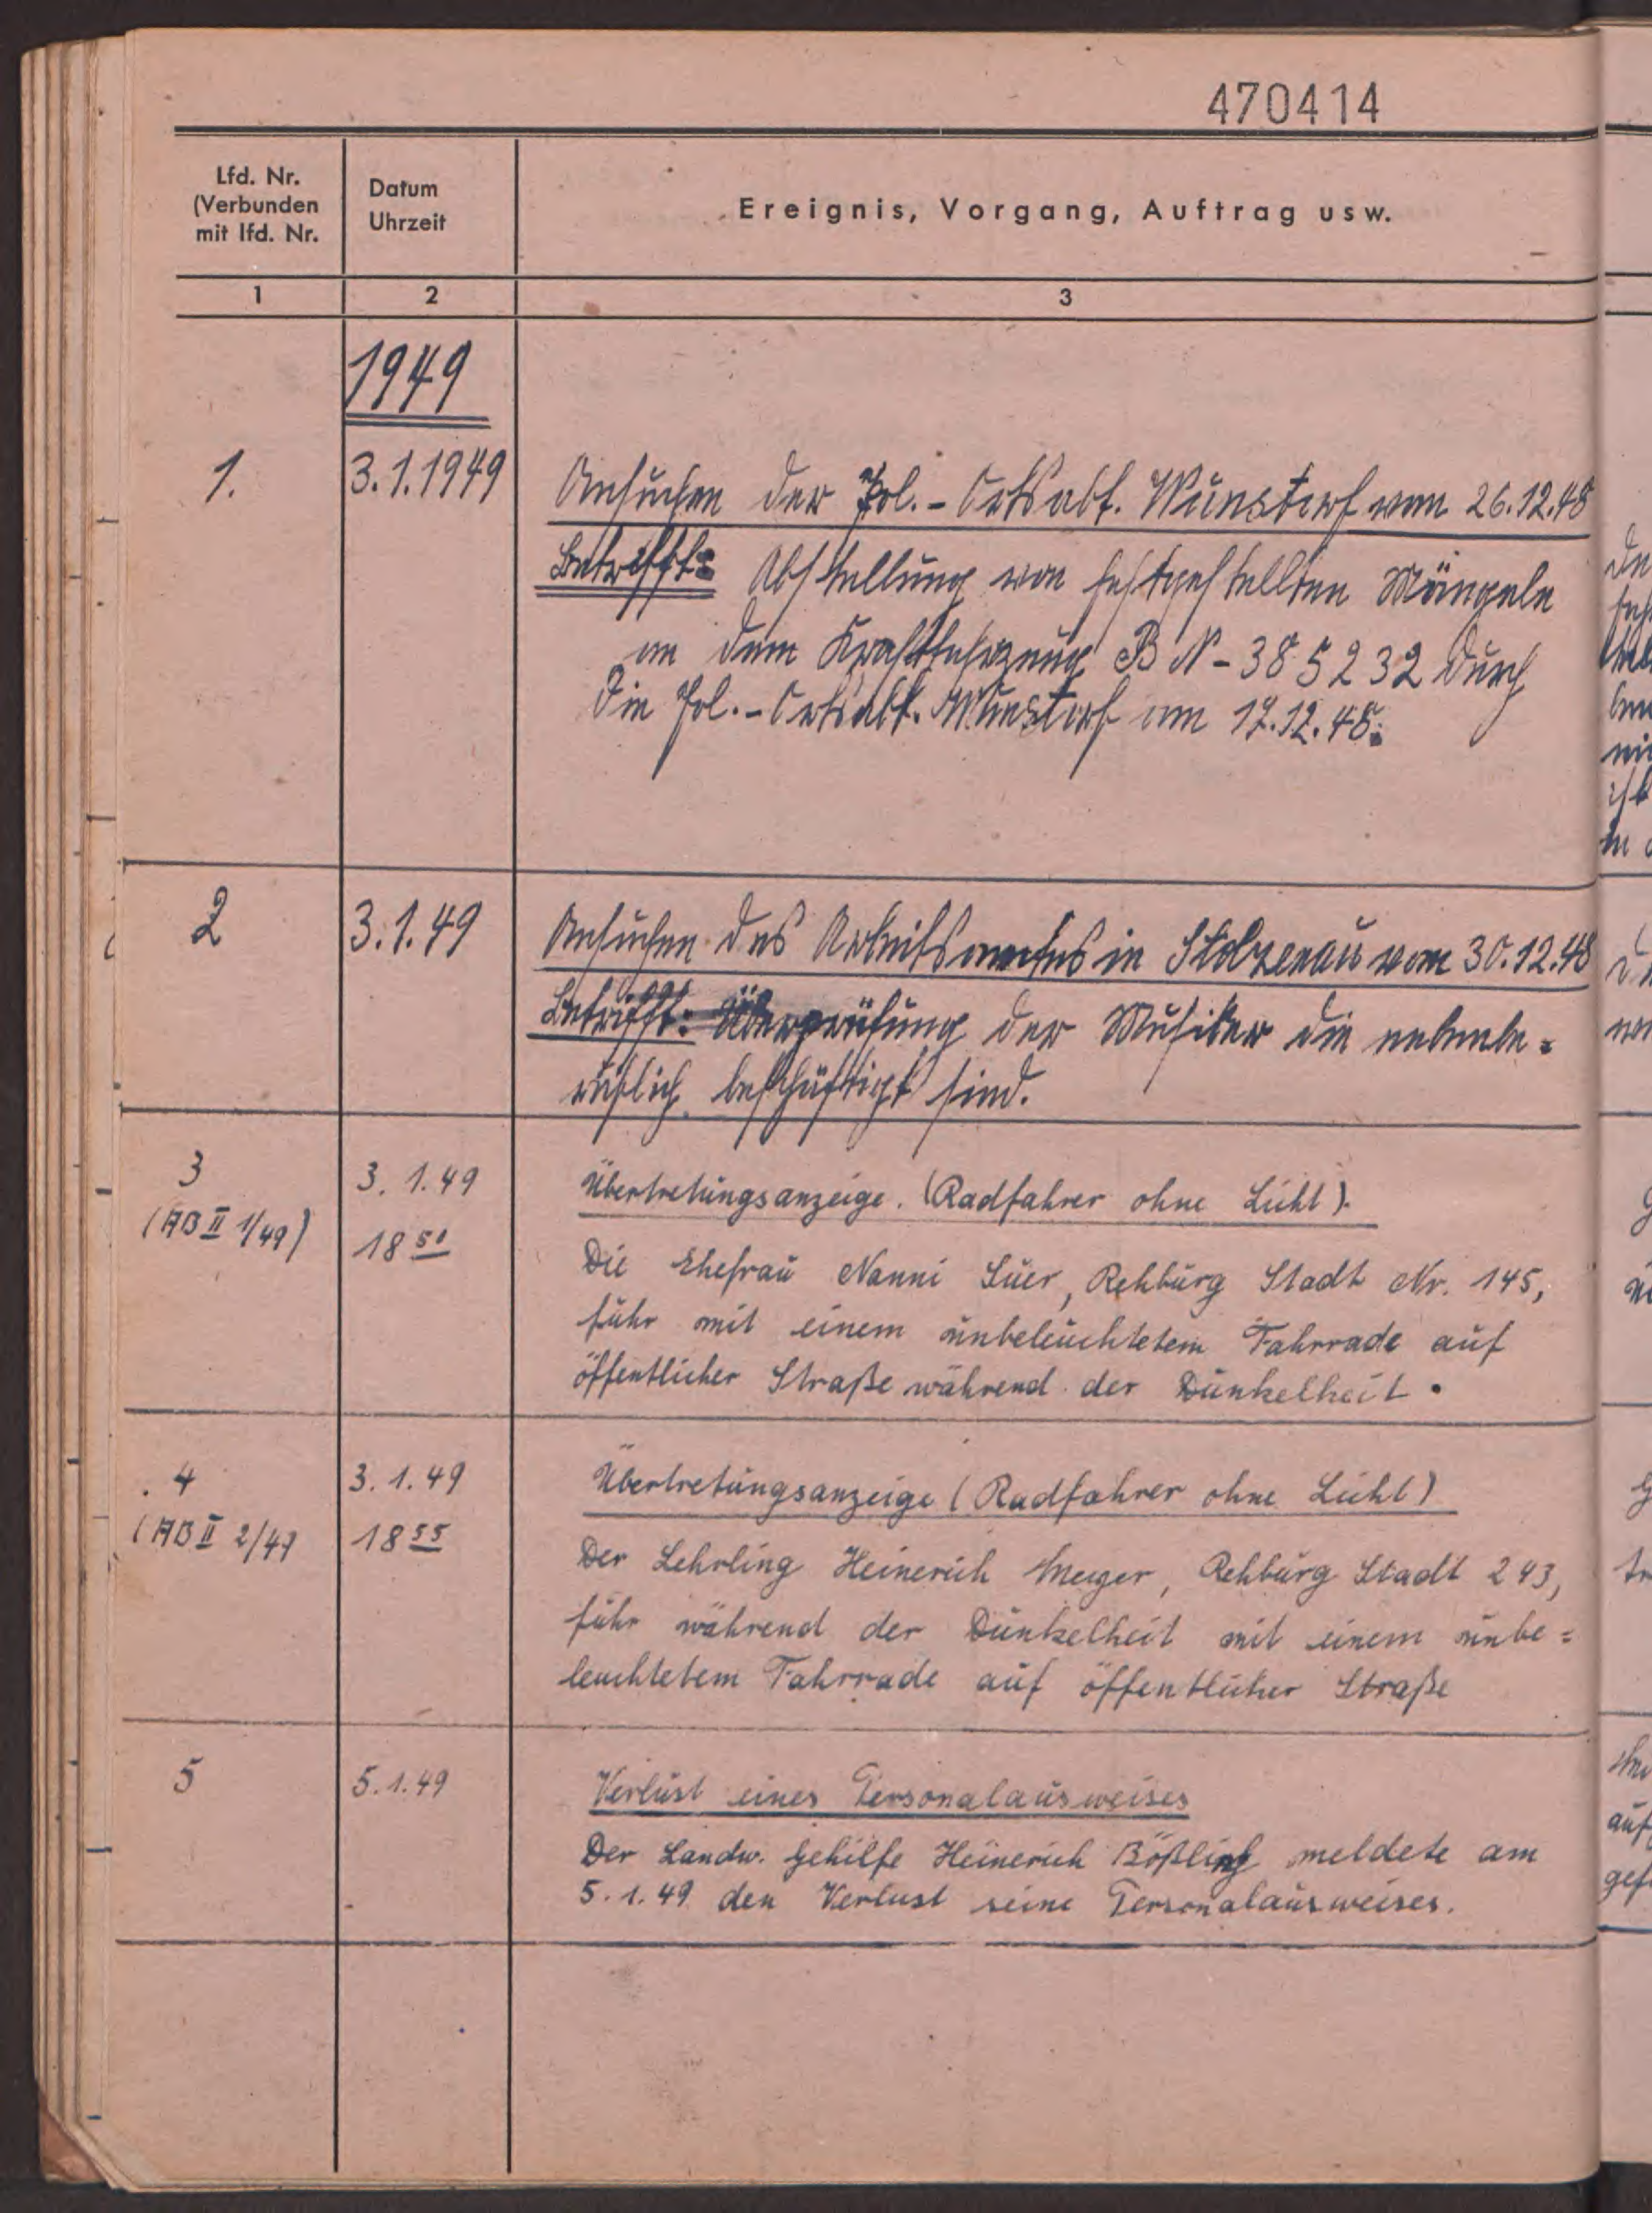 470414
Lfd. Nr.
(Verbunden
mit lfd. Nr.
Datum
Uhrzeit
Ereignis, Vorgang, Auftrag usw.
1 2 3
1949
1. 3.1.1949 Ansuchen der Pol.-Ortsabt. Wunstorf vom 26.12.48
Betrifft: Abstellung von festgestellten Mängeln
an dem Kraftfahrzeug BN-385232 durch
die Pol.-Ortsabt. Wunstorf am 17.12.48.
2 3.1.49 Ansuchen des Arbeitsamtes in Stolzenau vom 30.12.48
Betrifft: Überprüfung der Musiker die nebenbe=
ruflich beschäftigt sind.
3 3.1.49 Übertretungsanzeige. (Radfahrer ohne Licht).
(AB II 1/49) 18 50
Die Ehefrau Nanni Suer, Rehburg Stadt Nr. 145,
fuhr mit einem unbeleuchtetem Fahrrade auf
öffentlicher Straße während der Dunkelheit.
4 3.1.49 Übertretungsanzeige (Radfahrer ohne Licht)
(AB II 2/49 18 55
Der Lehrling Heinerich Meyer, Rehburg Stadt 243,
fuhr während der Dunkelheit mit einem unbe=
leuchtetem Fahrrade auf öffentlicher Straße
5 5.1.49 Verlust eines Personalausweises
Der Landw. Gehilfe Heinerich Bößling meldete am
5.1.49 den Verlust seine Personalausweises.